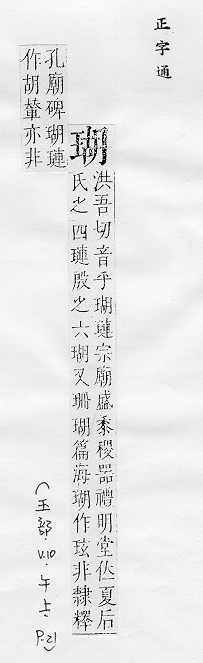 正字通
瑚
洪吾切音乎瑚璉宗廟盛黍稷器禮明堂位夏后
氏之四璉殷之六瑚又珊瑚篇海瑚作玹非隸釋
孔廟碑瑚璉
作胡輦亦非
(玉部·V.10·午上·P.21)